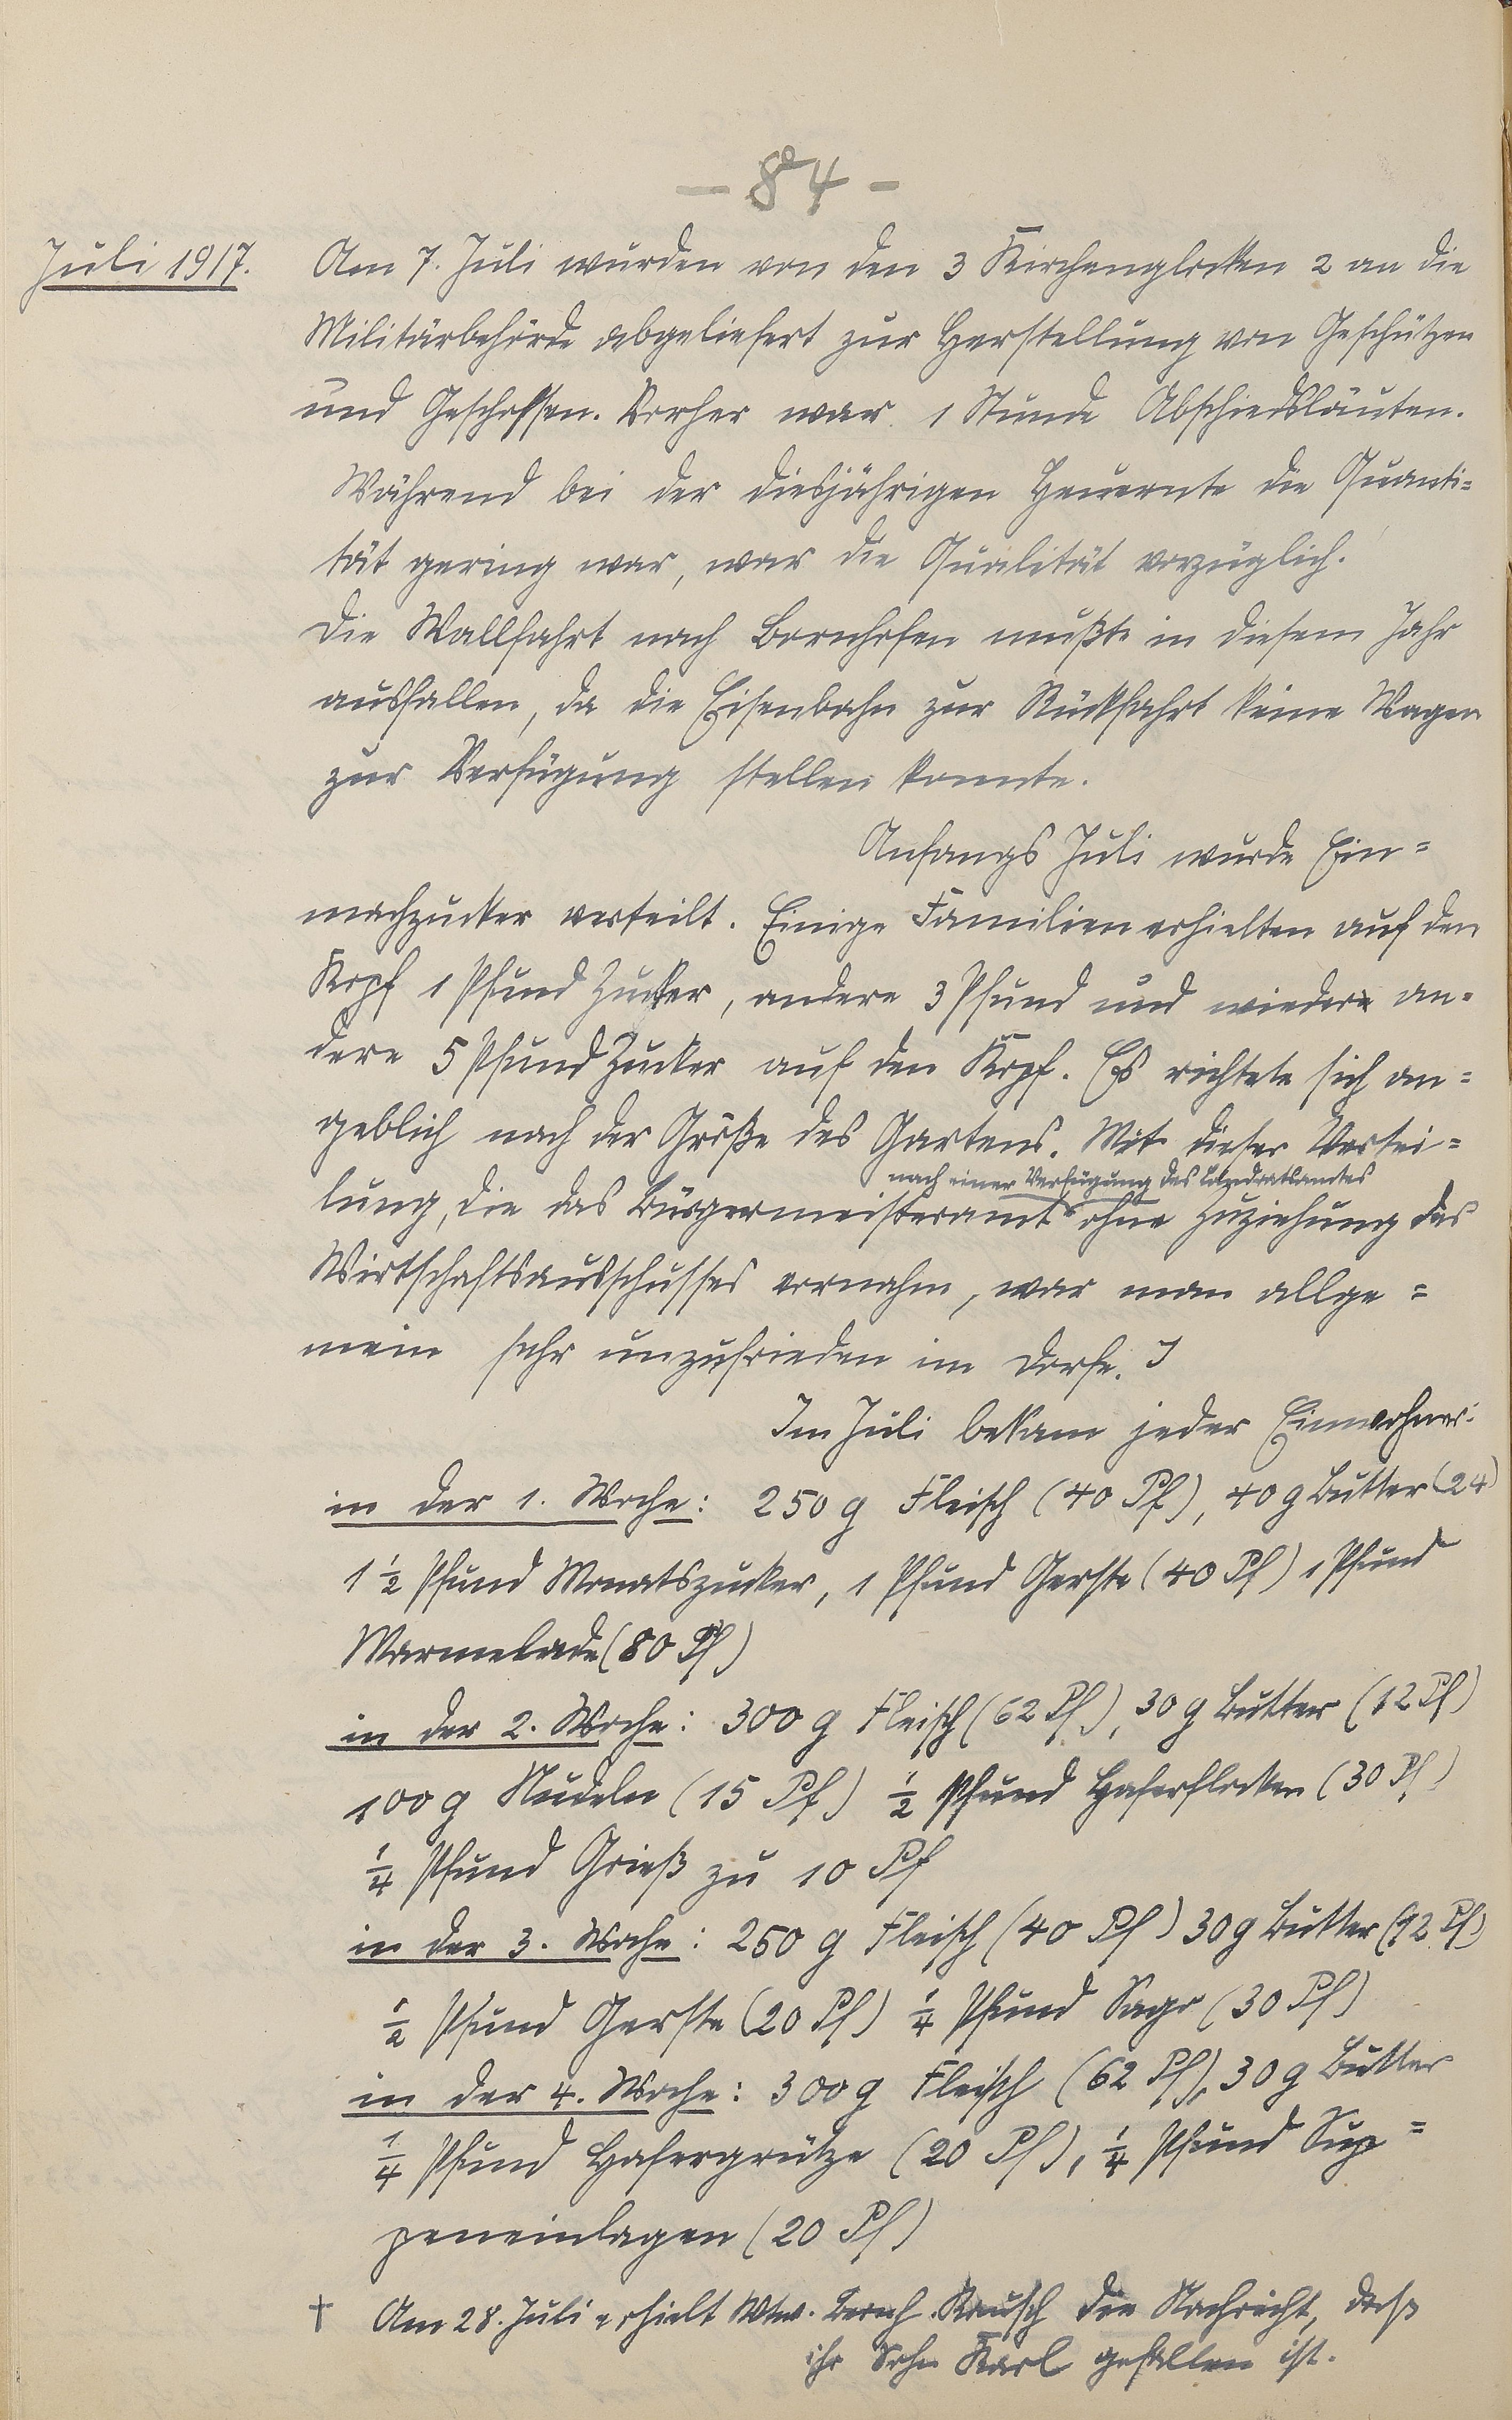 - 84 -
Juli 1917.
Am 7. Juli wurden von den 3 Kirchenglocken 2 an die
Militärbehörde abgeliefert zur Herstellung von Geschützen
und Geschossen. Vorher war 1 Stunde Abschiedsläuten.
Während bei der diesjährigen Heuernte die Quanti=
tät gering war, war die Qualität vorzüglich.
Die Wallfahrt nach Bornhofen mußte in diesem Jahr
ausfallen, da die Eisenbahn zur Rückfahrt keine Wagen
zur Verfügung stellen konnte.
Anfangs Juli wurde Ein=
machzucker verteilt. Einige Familien erhielten auf den
Kopf 1 Pfund Zucker, andere 3 Pfund und wieder an=
dere 5 Pfund Zucker auf den Kopf. Es richtete sich an=
geblich nach der Größe des Gartens. Mit dieser Vertei=
nach einer Verfügung des Landratsamtes
lung, die das Bürgermeisteramt ohne Zuziehung des
Wirtschaftsausschusses vornahm, war man allge=
mein sehr unzufrieden im Dorfe. I
Im Juli bekam jeder Einwohner:
in der 1. Woche: 250 g Fleisch (40 Pf), 40 g Butter (24)
1 1/2 Pfund Monatszucker, 1 Pfund Gerste (40 Pf) 1 Pfund
Marmelade (80 Pf)
in der 2. Woche: 300 g Fleisch (62 Pf), 30 g Butter (12 Pf)
100 g Nudeln (15 Pf) 1/2 Pfund Haferflocken (30 Pf)
1/4 Pfund Grieß zu 10 Pf
in der 3. Woche: 250 g Fleisch (40 Pf) 30 g Butter (12 Pf)
1/2 Pfund Gerste (20 Pf) 1/4 Pfund Sago (30 Pf)
in der 4. Woche: 300 g Fleisch (62 Pf), 30 g Butter
1/4 Pfund Hafergrütze (20 Pf), 1/4 Pfund Sup=
peneinlagen (20 Pf)
† Am 28. Juli erhielt Wtw. Bernh. Kausch die Nachricht, daß
ihr Sohn Karl gefallen ist.